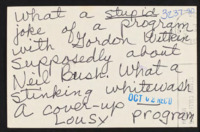 What a stupid
joke of a program
with Gordon
supposedly about
Neil Bush. What a
stinking whitewash
A cover-up
OCT
Lousy program